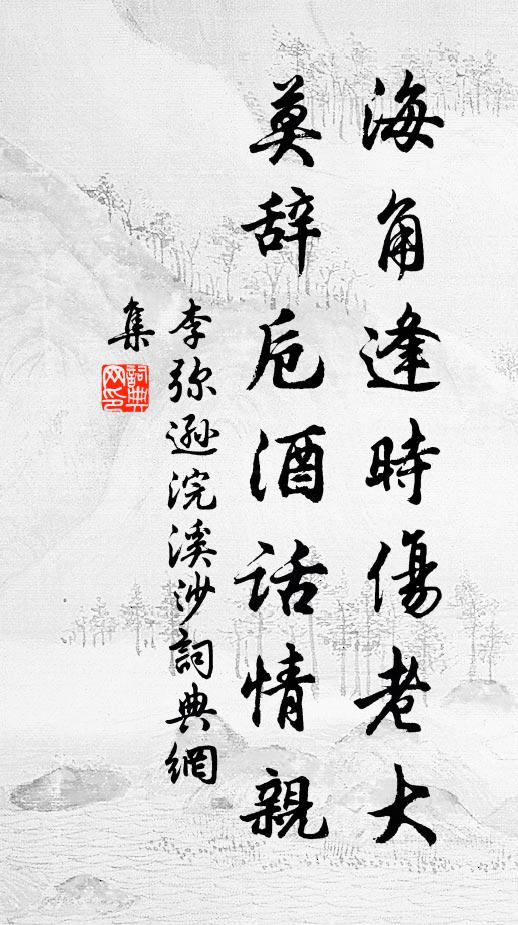 海角逢時傷老大
莫辞卮酒話情親
李弥遜浣溪沙詞典網
集
詞典
网印